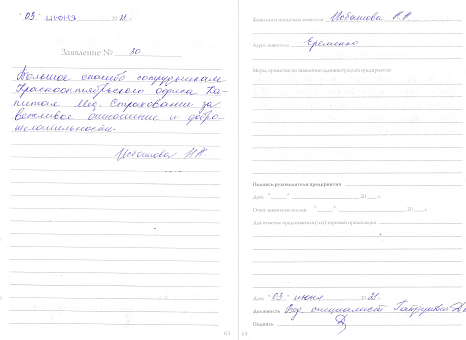 "03" июня 21 г.
Заявление № 30
Большое спасибо сотрудникам
Краснооктябрьского офиса Ка-
питал Мед. Страхования за
вежливое отношение и добро-
желательность.
Фамилия и инициалы заявителя
Адрес заявителя Еременко
Меры, принятые по заявлению администрацией предприятия:
Подпись руководителя предприятия
Дата " " 20 г.
Ответ заявителю послан " " 20 г.
Для отметок представителя(ей)
Дата "03" июня 20 21 г.
Должность Вед. специалист
Подпись
63
64